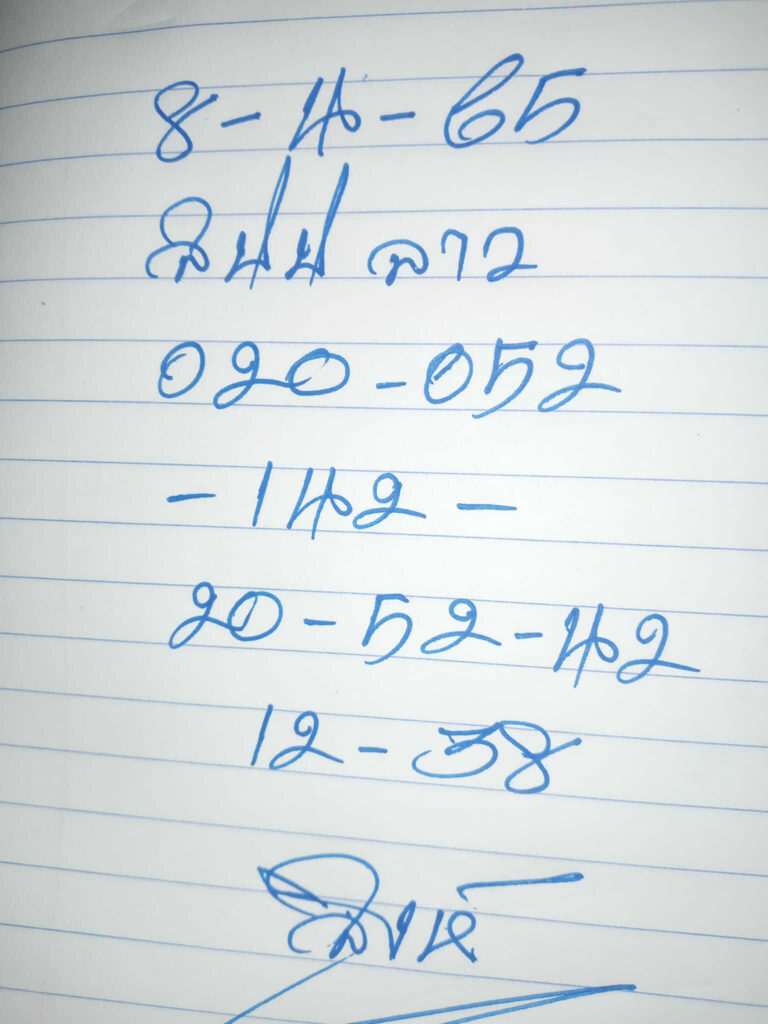 8-4-65
สิปป ลาว
020-052
-142-
20-52-42
12-38
สิงห์